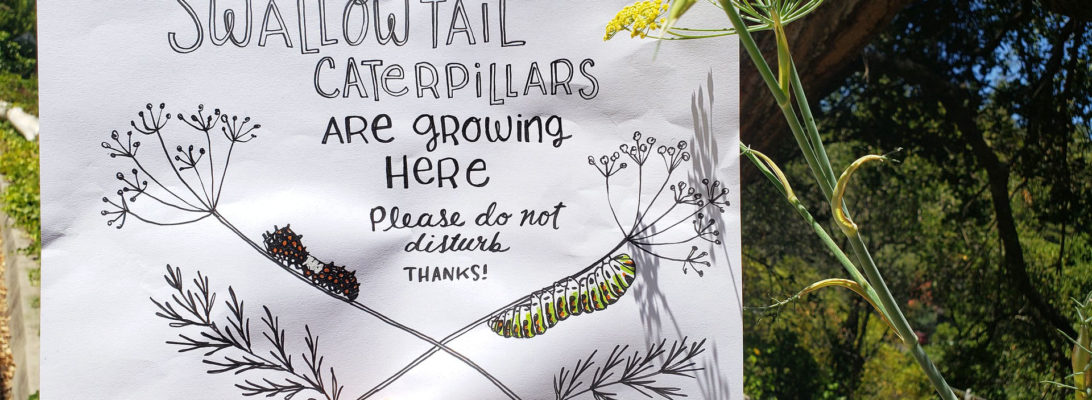 SWALLOWTAIL
CATERPILLARS
ARE GROWING
HERE
Please do not
disturb
THANKS!